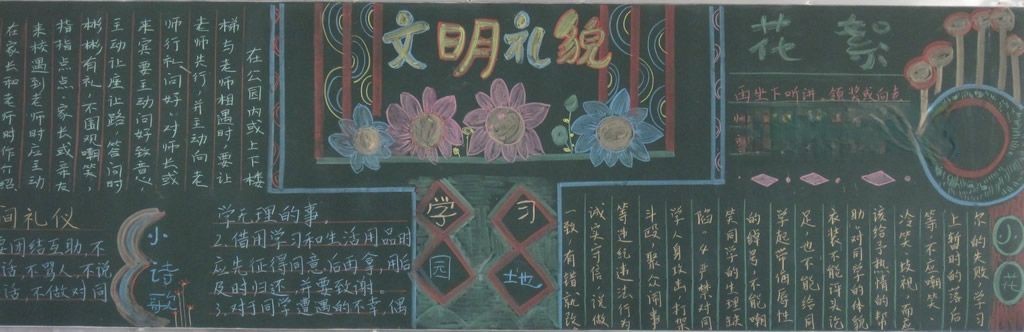 文明礼貌
花絮
在公园内或上下楼
梯与老师相遇时,要让
老师先行,并主动向老
师行礼问好。对师长或
来宾要主动问好致意
主动让座让路,答问时
彬彬有礼,不围观嘲笑,
指指点点。家长或亲友
来校遇到老师时应主动
在家长和老师时作介绍
间礼仪
要团结互助,不
话,不骂人,不说
话,不做对同
小诗歌
学无理的事。
2.借用学习和生活用品时
应先征得同意后再拿,用后
及时归还,并要致谢。
3.对于同学遭遇的不幸,偶
学习
园地
尔的失败,学习
上暂时的落后
等,不应嘲笑、
冷笑、歧视,而
应该给予热情的帮
助,对同学的体貌
衣装不能评头论
足,也不能给同
学起带侮辱性
的绰号,不能嘲
笑同学的生理缺
陷。4.严禁对同
学人身攻击,打架
斗殴,聚众闹事
等违纪违法行为
诚实守信,说做
一致,有错就改
小花